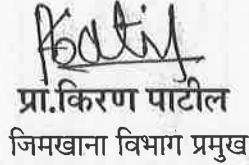 प्रा.किरण पाटील
जिमखाना विभाग प्रमुख